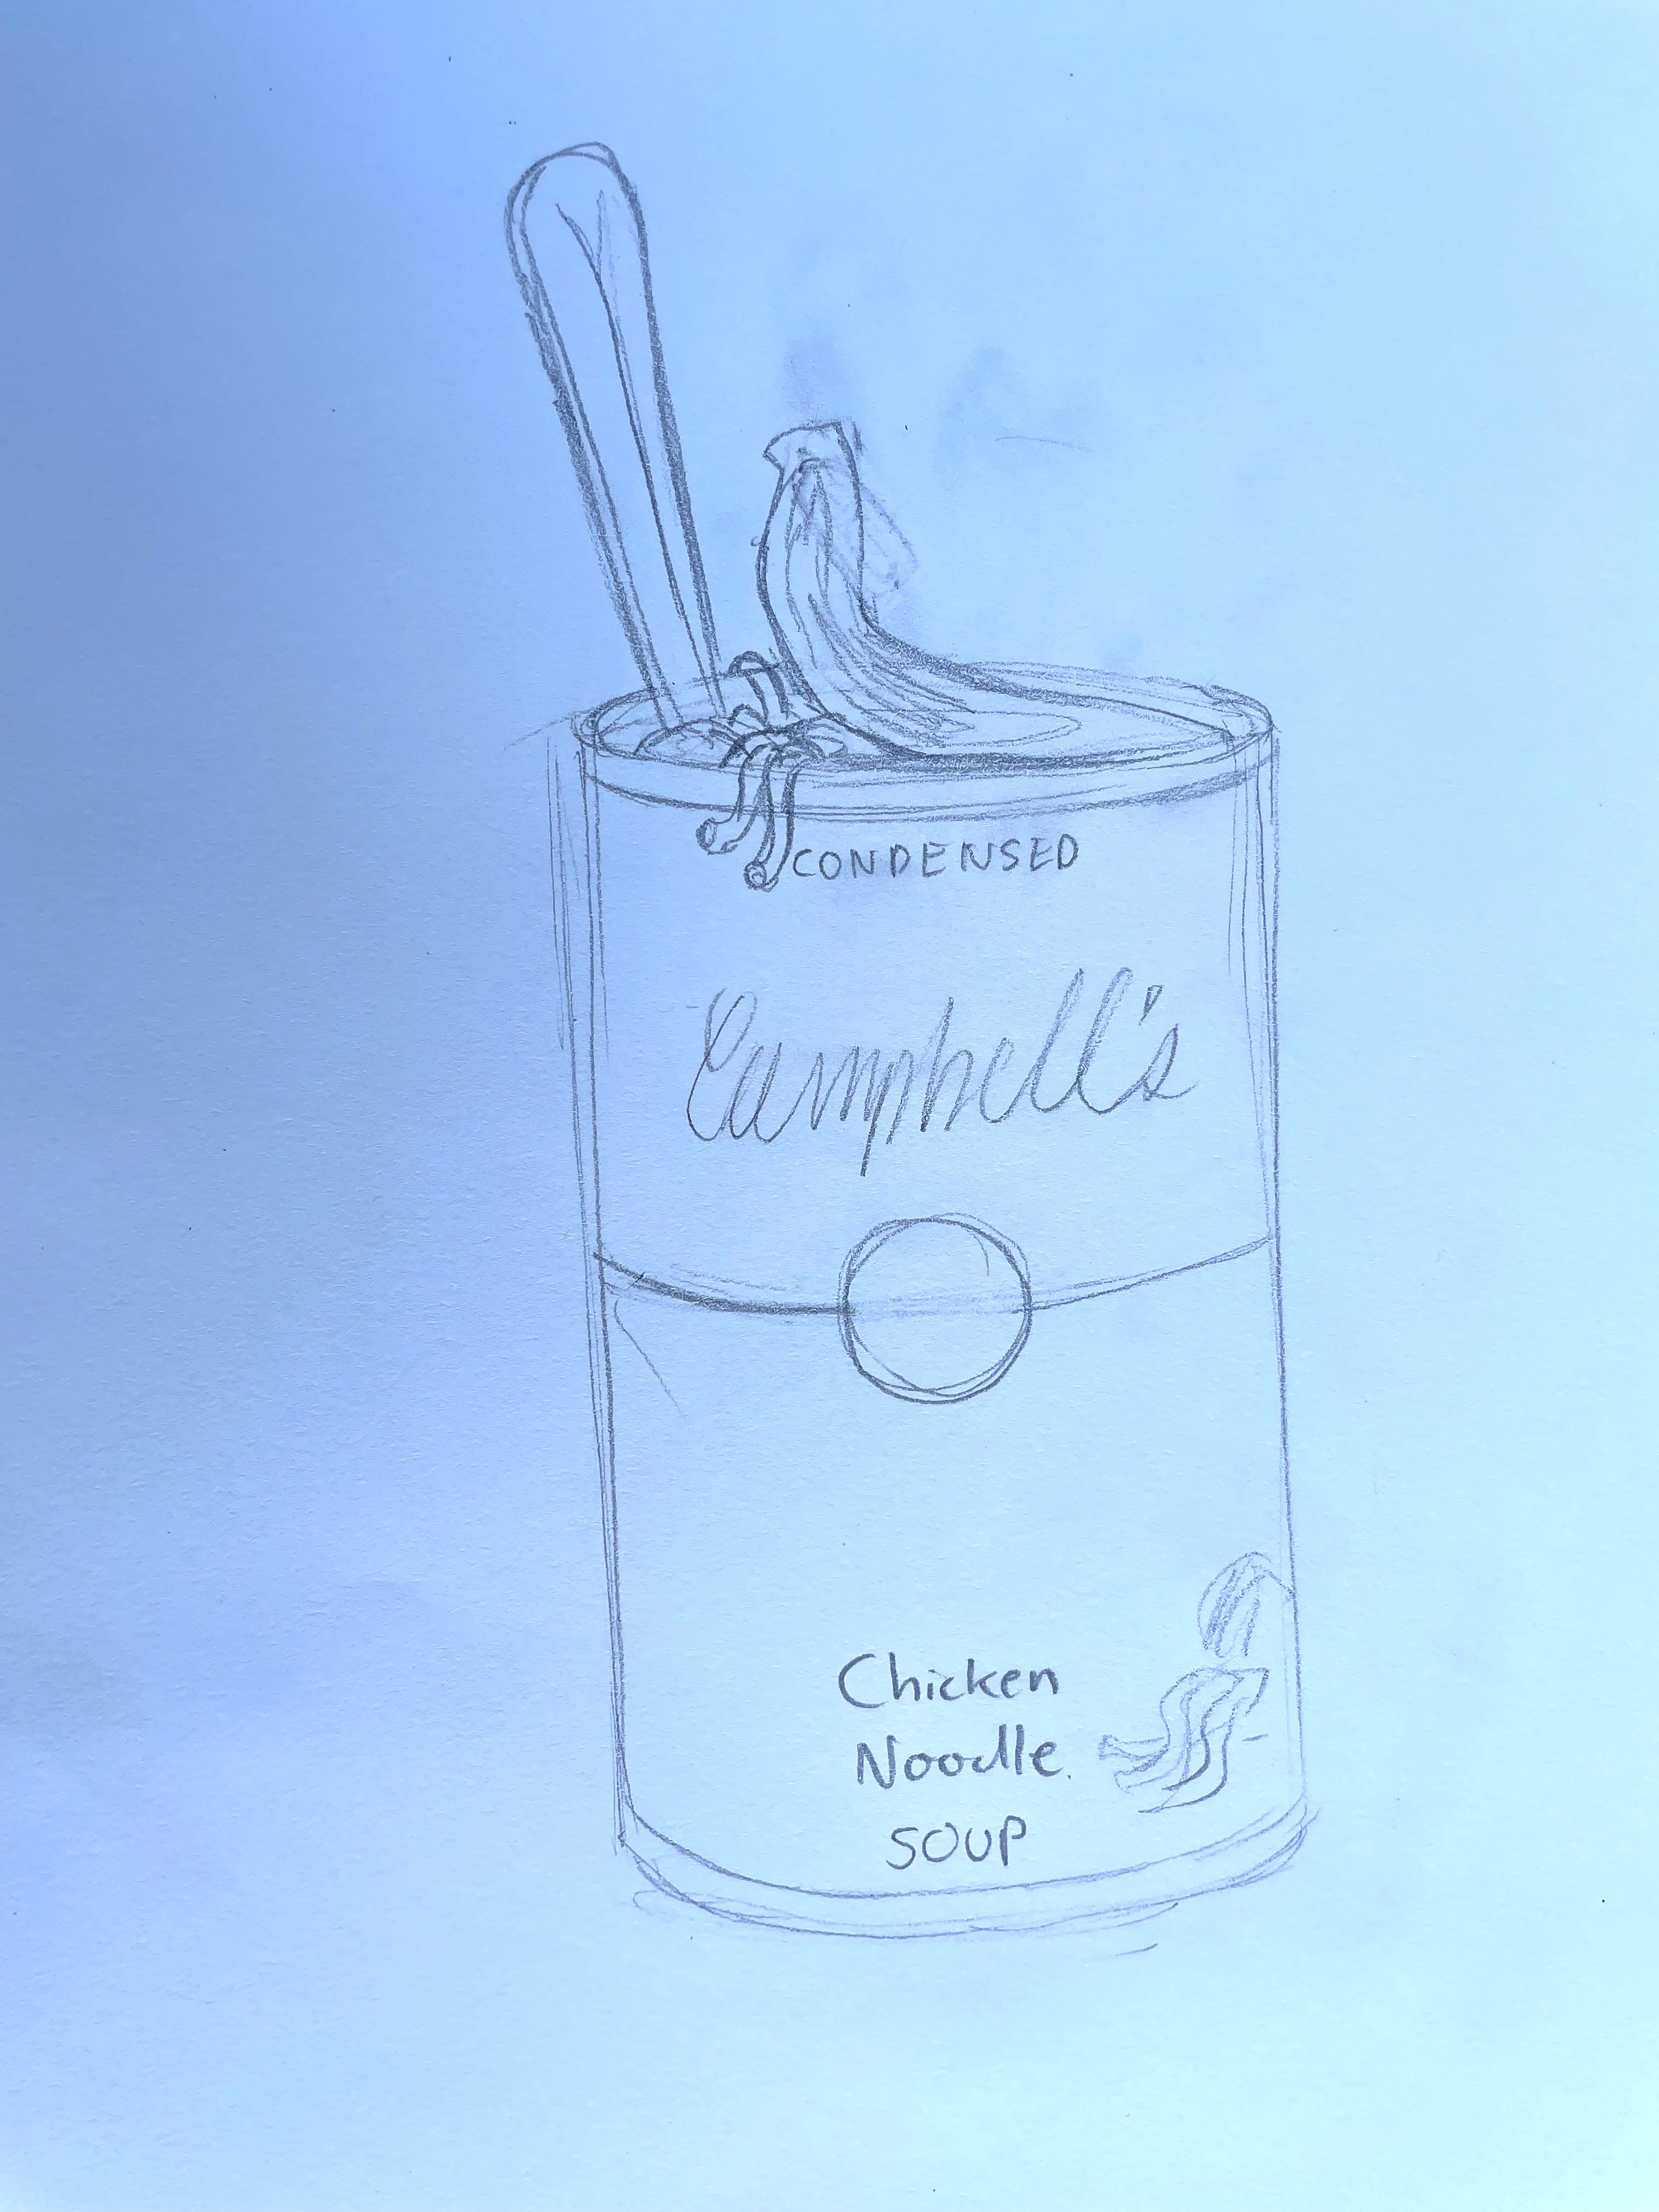 CONDENSED
Campbell's
Chicken
Noodle
SOUP